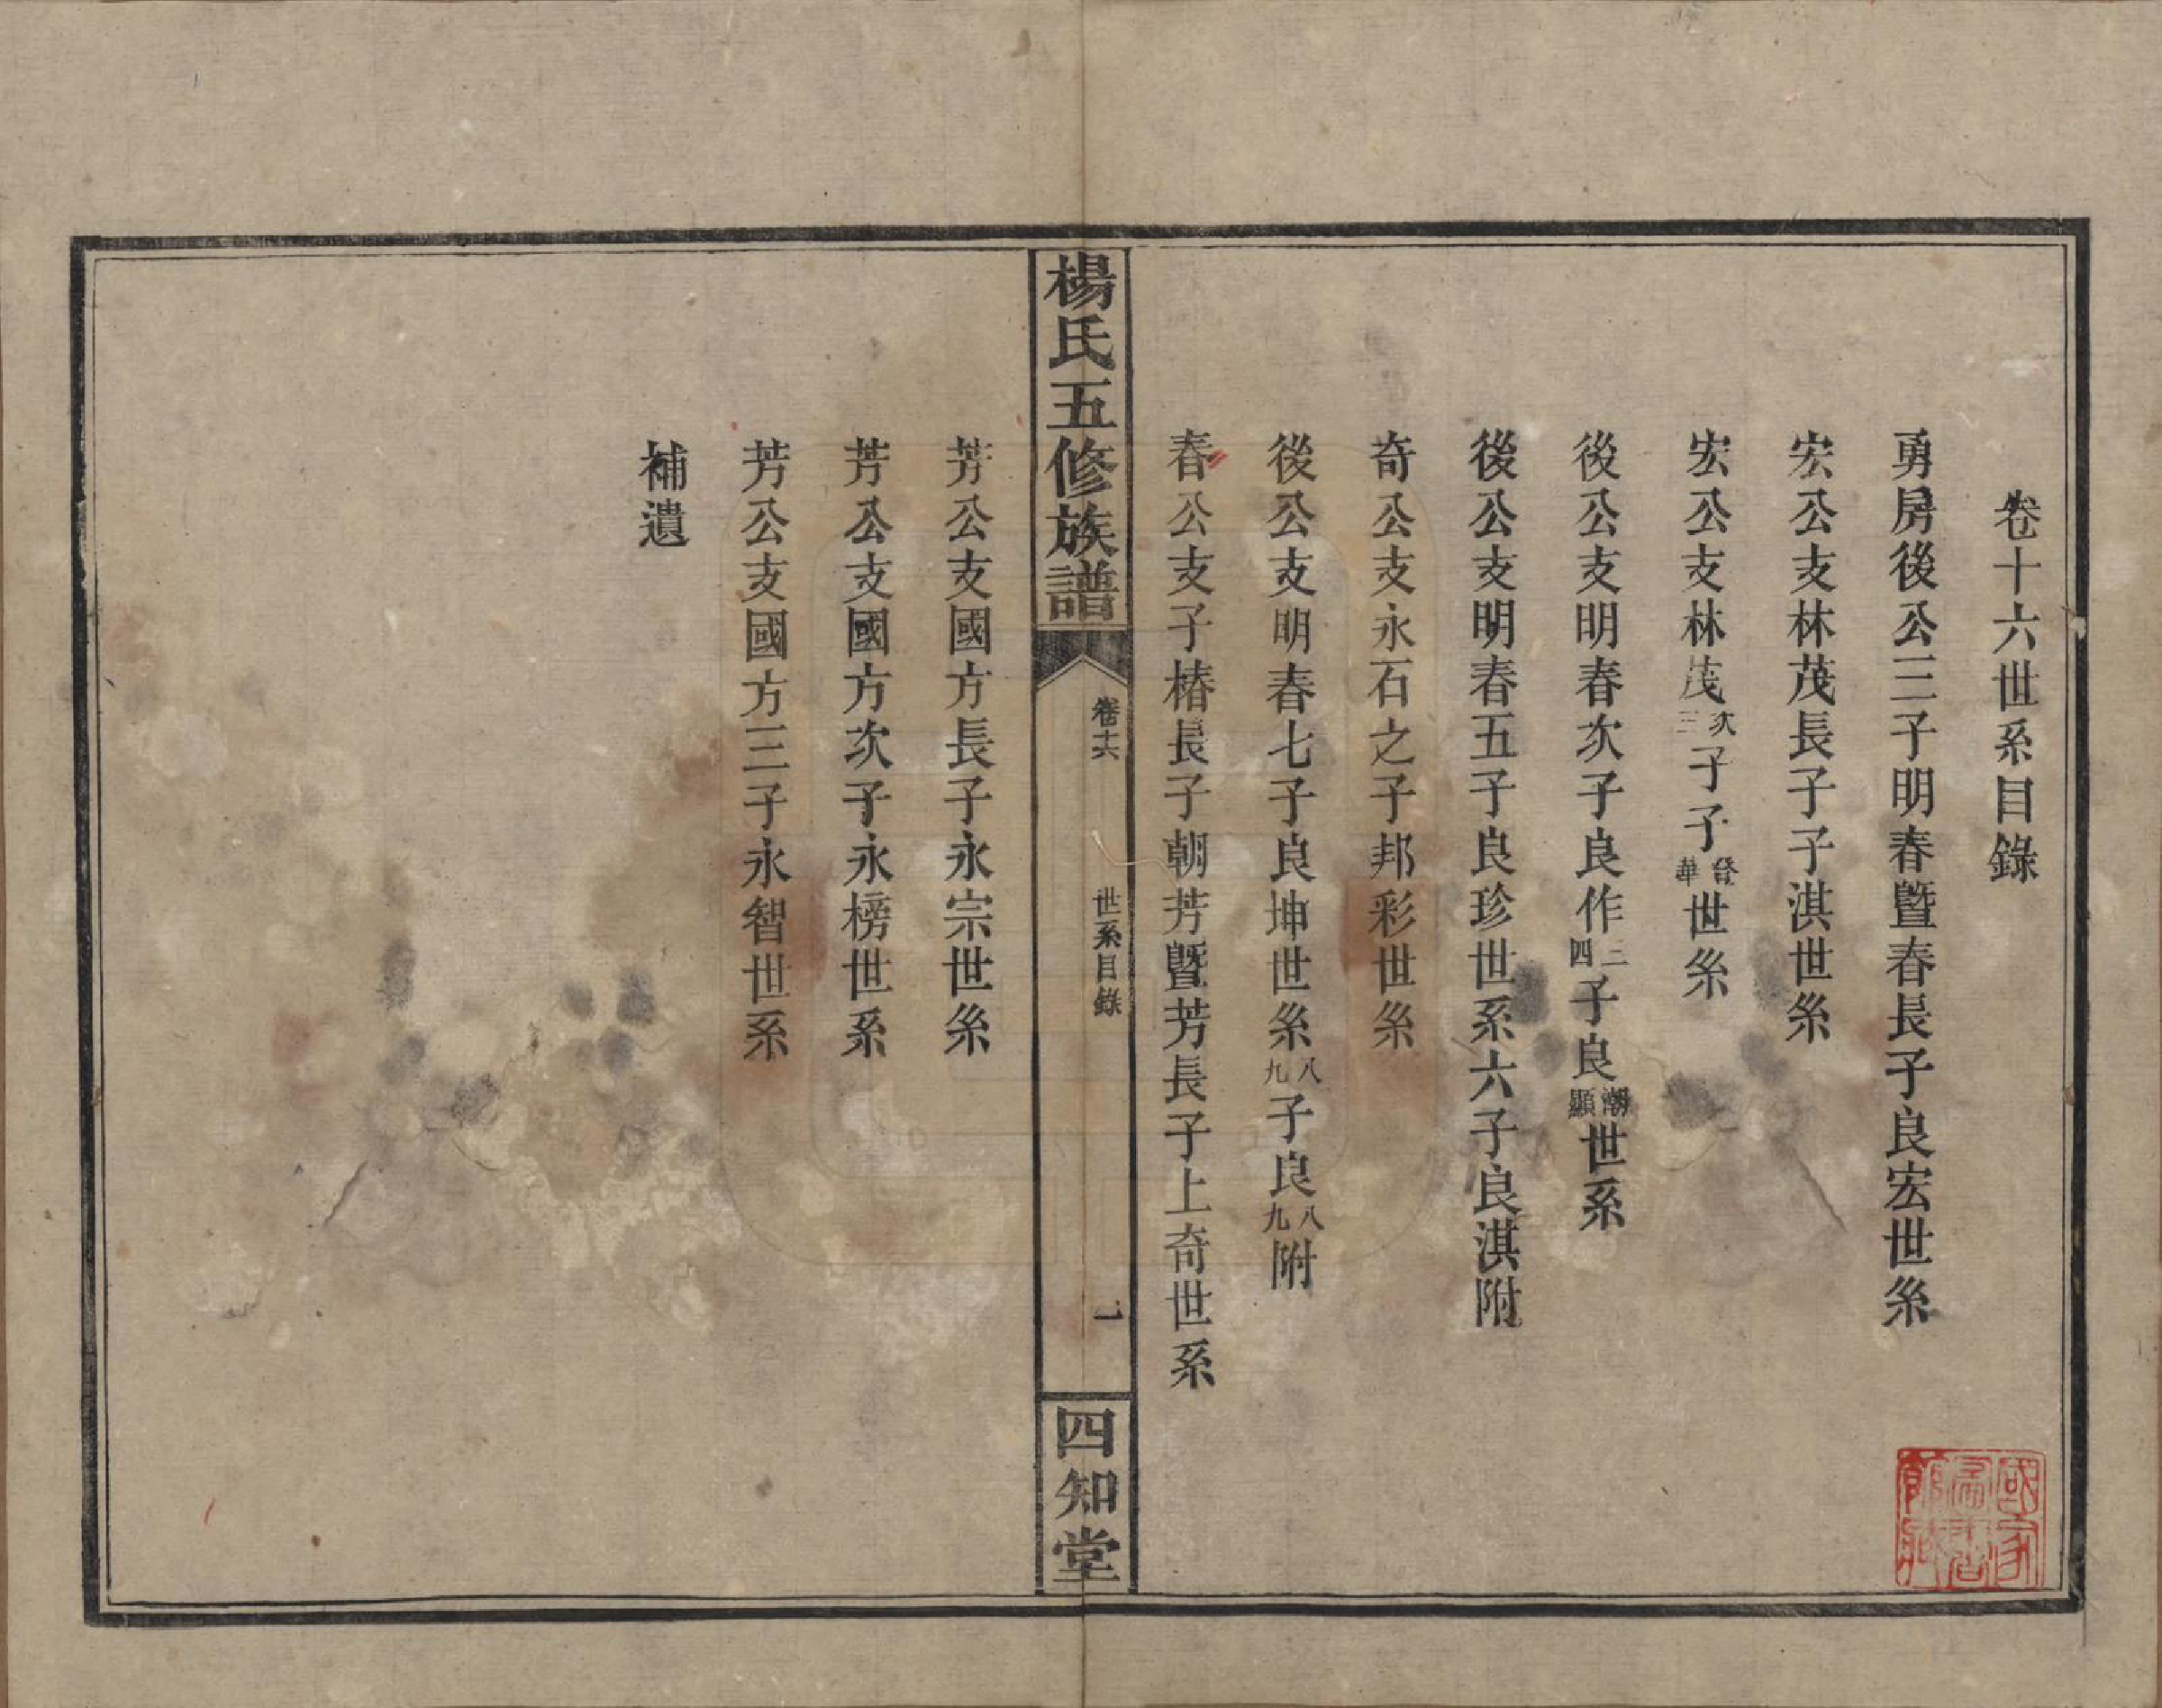 卷十六世系目錄
勇房後公三子明春暨春長子良宏世系
宏公支林茂長子子淇世系
宏公支林茂次三子子發華世系
後公支明春次子良作三四子良潮顯世系
後公支明春五子良珍世系六子良淇附
奇公支永石之子邦彩世系
後公支明春七子良坤世系八九子良八九附
春公支子椿長子朝芳暨芳長子上奇世系
楊氏五修族譜
卷十六
世系目錄
一
四知堂
芳公支國方長子永宗世系
芳公支國方次子永榜世系
芳公支國方三子永智世系
補遺